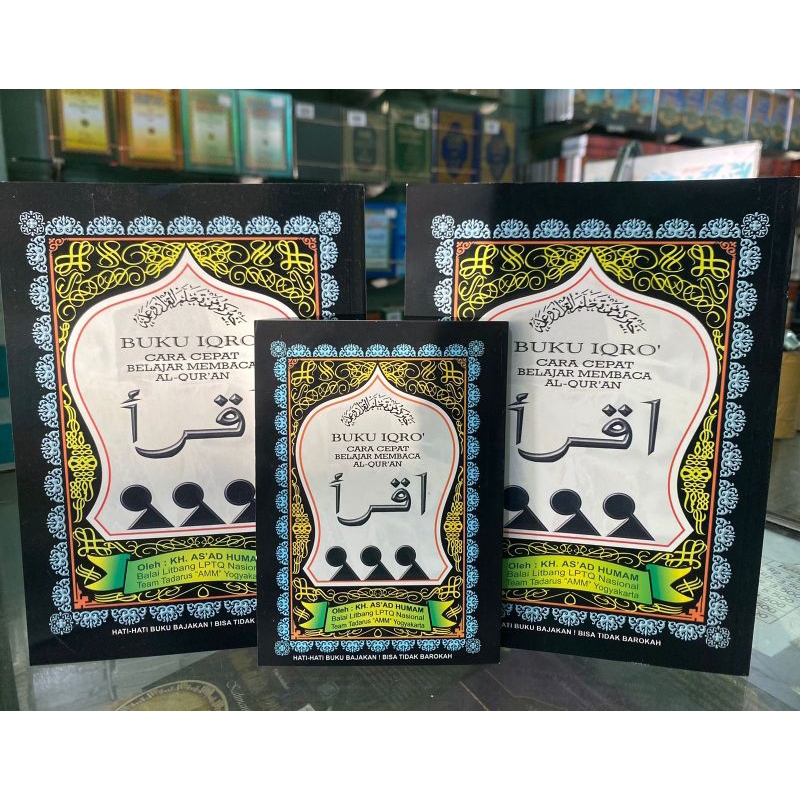 خيركم من تعلم القرآن وعلمه
BUKU IQRO
CARA CEPAT
BELAJAR MEMBACA
AL-QUR'AN
قرأ
Oleh : KH. AS'AD HUMAM
Balai Litbang LPTQ Nasional
Team Tadarus "AMM" Yogyakarta
HATI-HATI BUKU BAJAKAN ! BISA TIDAK
خيركم من تعلم القرآن وعلمه
BUKU IQRO'
CARA CEPAT
BELAJAR MEMBACA
AL-QUR'AN
اقرأ
Oleh : KH. AS'AD HUMAM
Balai Litbang LPTQ Nasional
Team Tadarus "AMM" Yogyakarta
HATI-HATI BUKU BAJAKAN ! BISA TIDAK BAROKAH
خيركم من تعلم القرآن وعلمه
BUKU IQRO'
CARA CEPAT
BELAJAR MEMBACA
AL-QUR'AN
اقرأ
Oleh : KH. AS'AD HUMAM
Balai Litbang LPTQ Nasional
Team Tadarus "AMM" Yogyakarta
HATI-HATI BUKU BAJAKAN ! BISA TIDAK BAROKAH